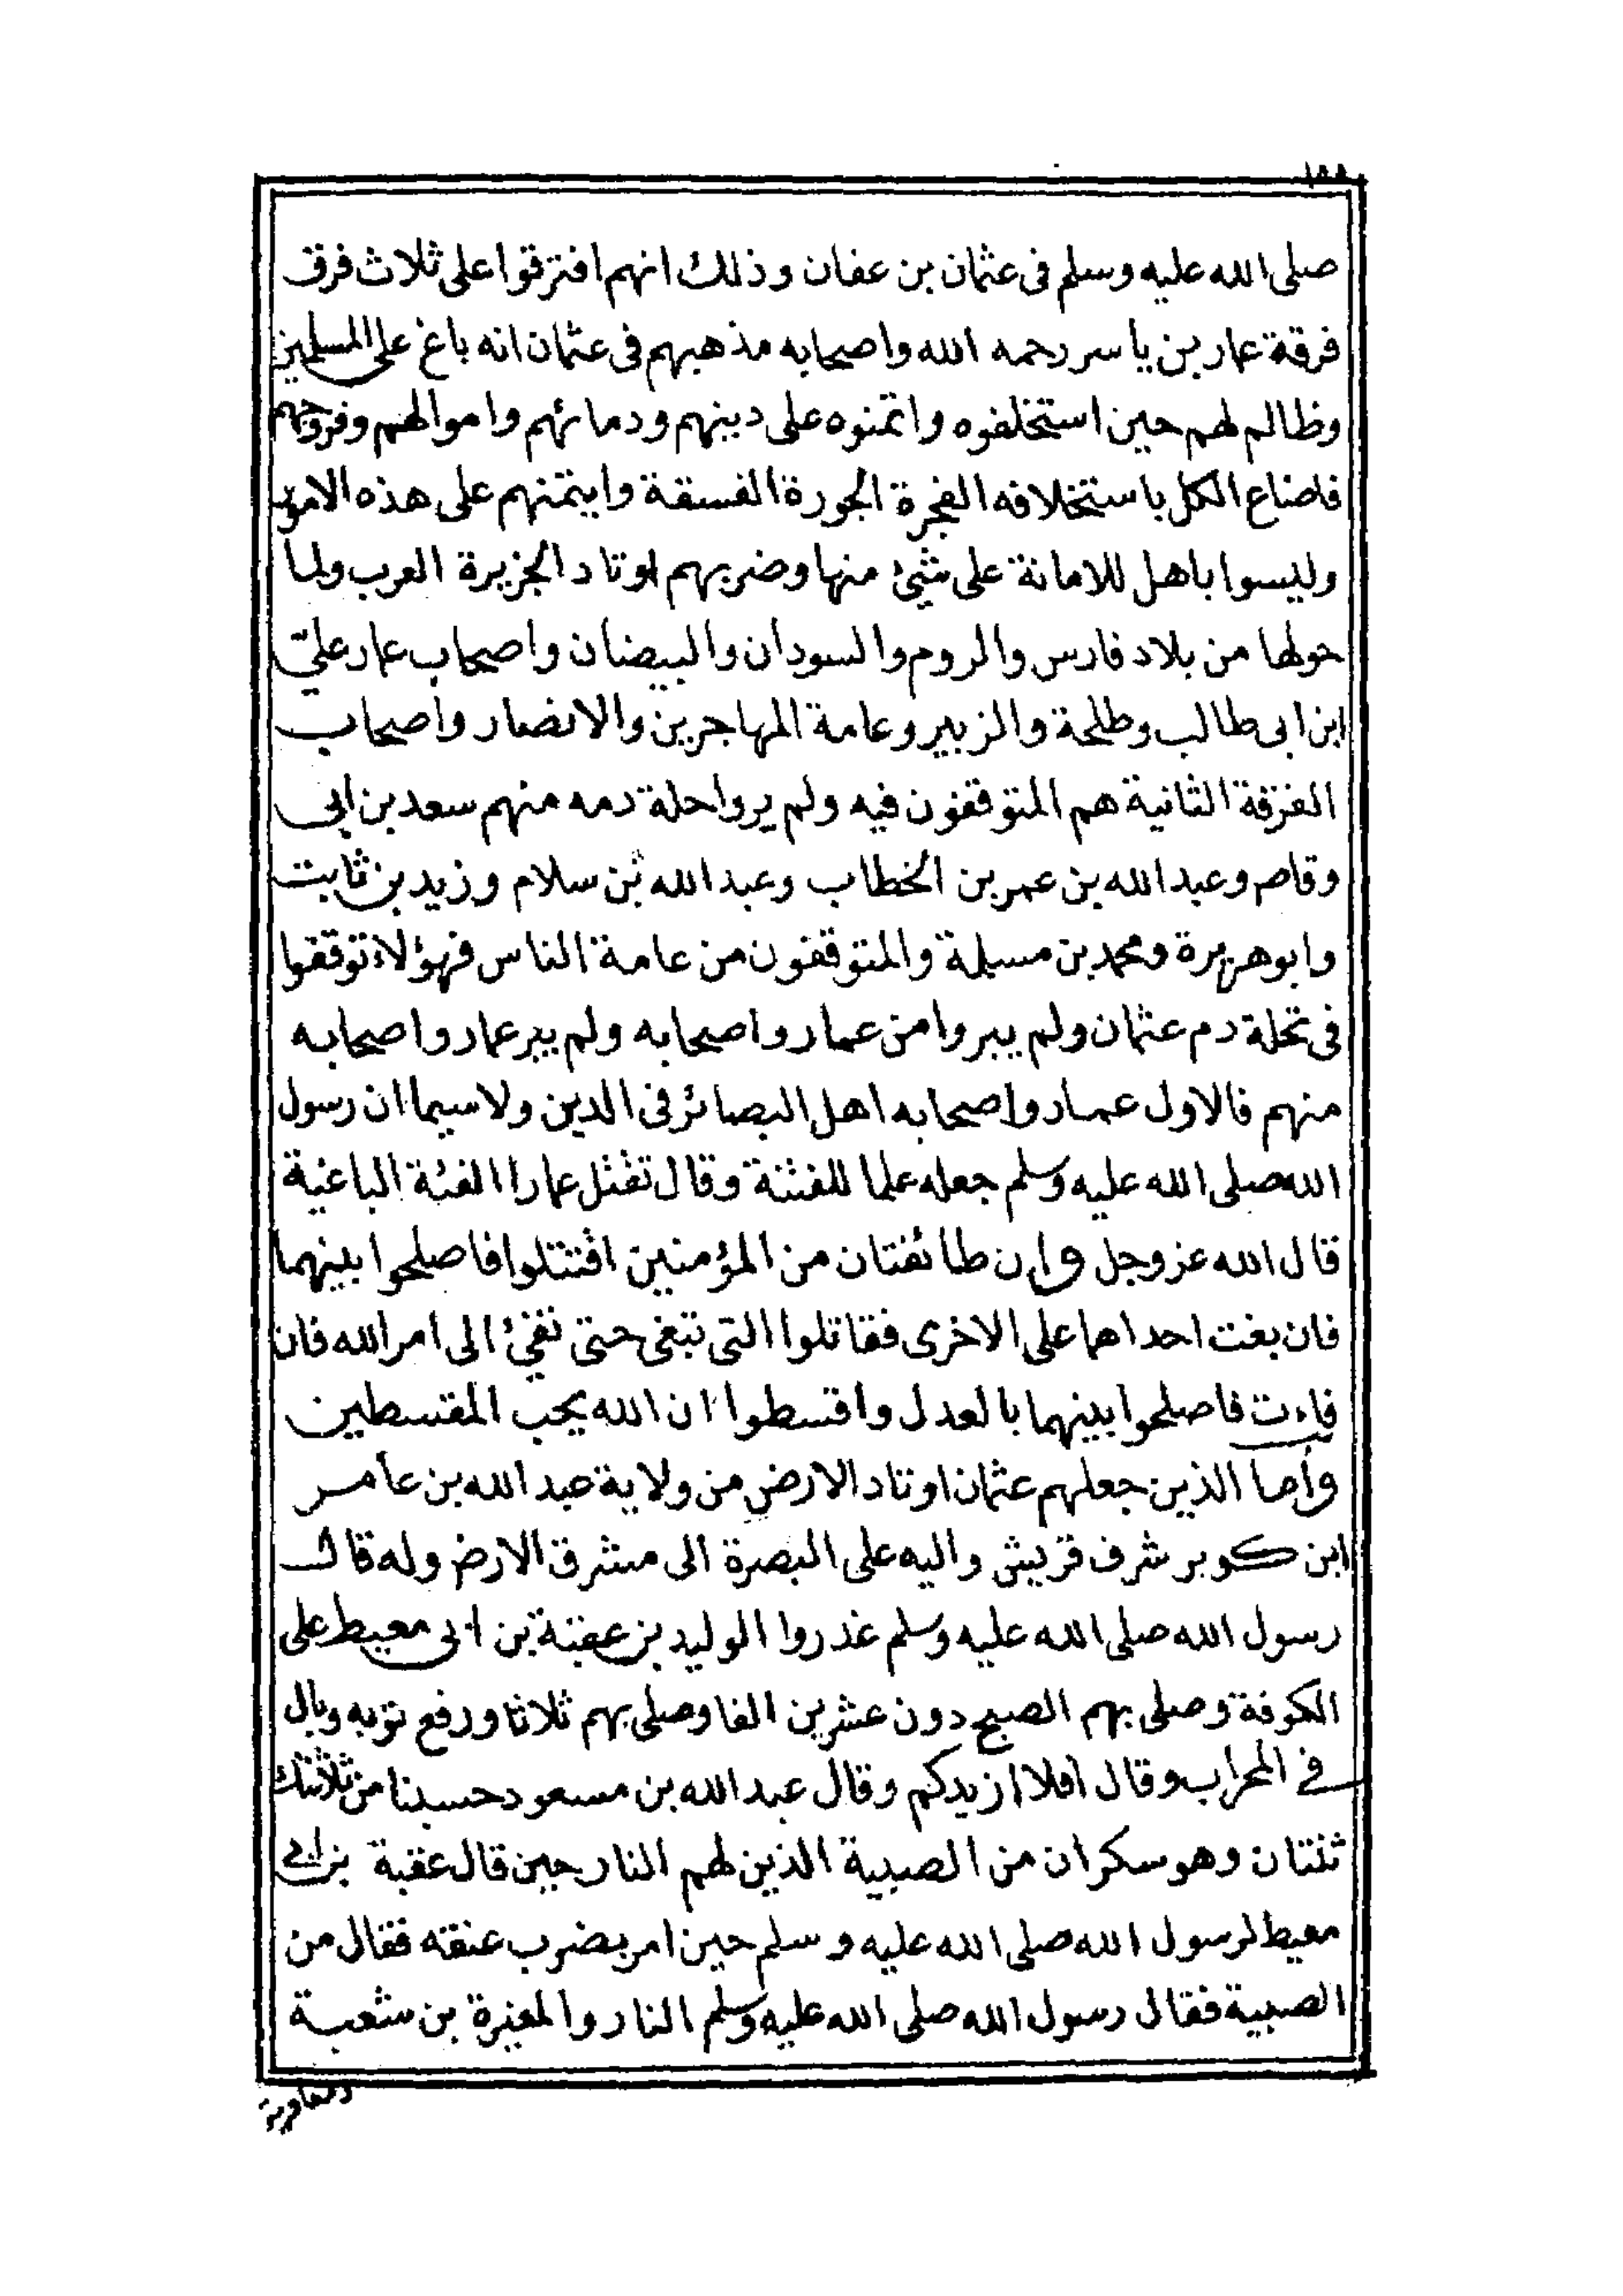 صلى الله عليه وسلم فى عثمان بن عفان وذلك انهم افترقوا على ثلاث فرق
فرقة عمار بن ياسر رحمه الله واصحابه مذهبهم فى عثمان انه باغ على المسلمين
وظالم لهم حين استخلفوه واتمنوه على دينهم ودمائهم واموالهم وفروجهم
فاضاع الكل باستخلافه الفجرة الجورة الفسقة وايتمنهم على هذه الامور
وليسوا باهل للامانة على شئ منها وضربهم اوتاد الجزيرة العرب ولما
حولها من بلاد فارس والروم والسودان والبيضان واصحاب عمار علىّ
ابن ابى طالب وطلحة والزبير وعامة المهاجرين والانصار واصحاب
الفرقة الثانية هم المتوقفون فيه ولم يروا حلة دمه منهم سعد بن ابى
وقاص وعبد الله بن عمر بن الخطاب وعبد الله بن سلام وزيد بن ثابت
وابو هريرة ومحمد بن مسيلمة والمتوقفون من عامة الناس فهؤلاء توقفوا
فى تحلة دم عثمان ولم يبروا من عمار واصحابه ولم يبر عمار واصحابه
منهم فالاول عمار واصحابه اهل البصائر فى الدين ولا سيما ان رسول
الله صلى الله عليه وسلم جعله علما للفتنة وقال تقتل عمارا الفئة الباغية
قال الله عز وجل وان طائفتان من المؤمنين اقتتلوا فاصلحوا بينهما
فان بغت احداهما على الاخرى فقاتلوا التى تبغى حتى تفئ الى امر الله فان
فاءت فاصلحوا بينهما بالعدل واقسطوا ان الله يحب المقسطين
واما الذين جعلهم عثمان اوتاد الارض من ولاية عبد الله بن عامر
ابن كوبر شرف قريش واليه على البصرة الى مشرق الارض وله قال
رسول الله صلى الله عليه وسلم غدروا الوليد بن عقبة بن ابى معيط على
الكوفة وصلى بهم الصبح دون عشرين الفا وصلى بهم ثلاثا ورفع ثوبه وبال
فى المحراب وقال افلا ازيدكم وقال عبد الله بن مسعود حسبنا من ثلاثتك
ثنتان وهو سكران من الصبية الذين لهم النار حين قال عقبة بن ابى
معيط لرسول الله صلى الله عليه وسلم حين امر بضرب عنقه فقال من
الصبية فقال رسول الله صلى الله عليه وسلم النار والمغيرة بن شعبة
ومعاوية